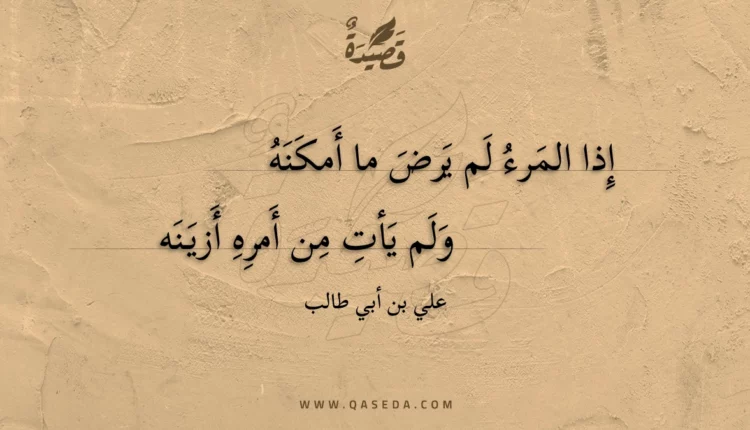 قَصِيدَةٌ
إِذا المَرءُ لَم يَرضَ ما أَمكَنَهُ
وَلَم يَأتِ مِن أَمرِهِ أَزيَنَه
علي بن أبي طالب
WWW.QASEDA.COM